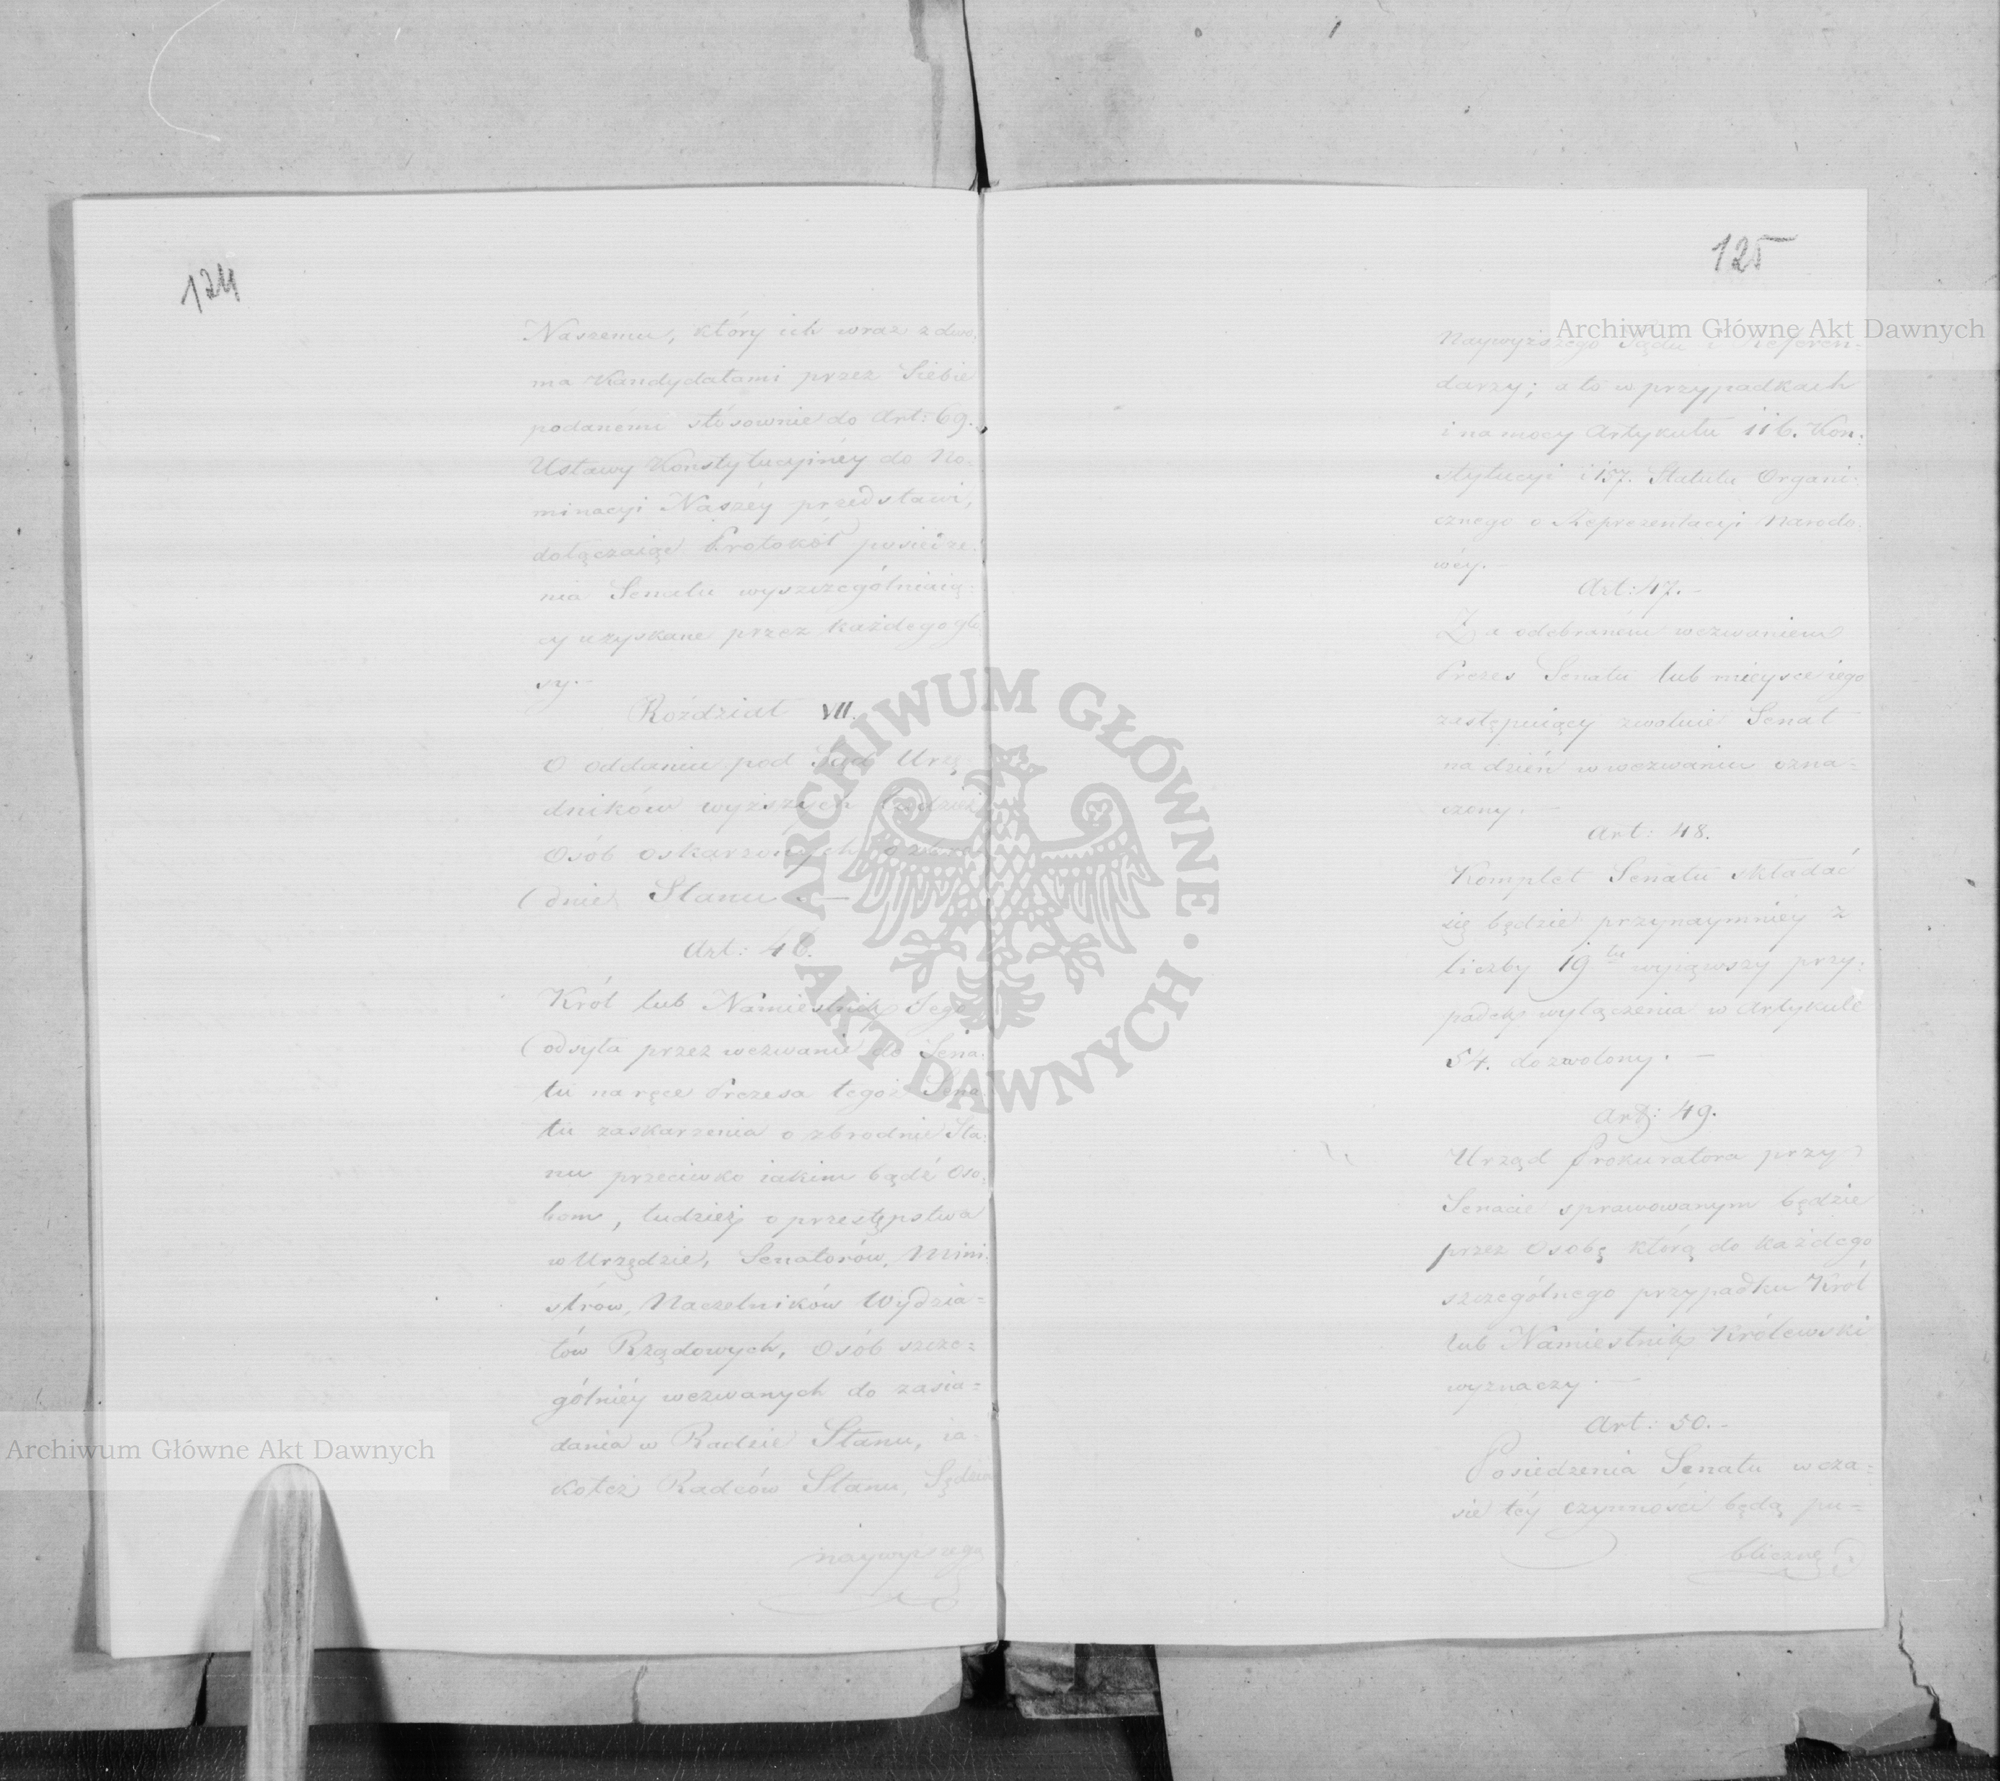 124
Naszemu, który ich wraz z dwo:
ma Kandydatami przez Siebie
podanémi stósownie do Art: 69.
Ustawy Konstytucyinéy do No:
minacyi Naszéy przedstawi,
dołączaiąc Protokół posiedze:
nia Senatu wyszczególniaią:
cy uzyskane przez każdego gło
sy.-
Rozdział VII.
O oddaniu pod Sąd Urzę:
dników wyższych tudzież
Osób oskarzonych o zbro
dnie Stanu.—
Art: 46.
Król lub Namiestnik Jego
odsyła przez wezwanie do Sena:
tu na ręce Prezesa tegoż Sena
tu zaskarzenia o zbrodnie Sta:
nu przeciwko iakim bądź Oso:
bom, tudzież o przestępstwa
w Urzędzie, Senatorów, Mini:
strów, Naczelników Wydzia=
łów Rządowych, Osób szcze=
gólniéy wezwanych do zasia=
dania w Radzie Stanu, ia=
kotéż Radców Stanu, Sędziów
naywyższego
125
Naywyższego Sądu i Referen=
darzy; a to w przypadkach
i na mocy Artykułu 116. Kon:
stytucyi i 157. Statutu Organi:
cznego o Reprezentacyi Narodo:
wéy.—
Art: 47.—
Za odebraném wezwaniem
Prezes Senatu lub mieysce iego
zastępuiący zwołuie Senat
na dzień w wezwaniu ozna=
czony.—
Art: 48.
Komplet Senatu składać
się będzie przynaymniéy z
liczby 19tu wyiąwszy przy:
padek wyłączenia w Artykule
54. dozwolony.—
Art: 49.
Urząd Prokuratora przy
Senacie sprawowanym będzie
przez Osobę którą do każdego
szczególnego przypadku Król
lub Namiestnik Królewski
wyznaczy.—
Art: 50.—
Posiedzenia Senatu w cza=
sie téy czynności będą pu=
bliczne
Archiwum Główne Akt Dawnych
Archiwum Główne Akt Dawnych
ARCHIWUM GŁÓWNE · AKT DAWNYCH ·